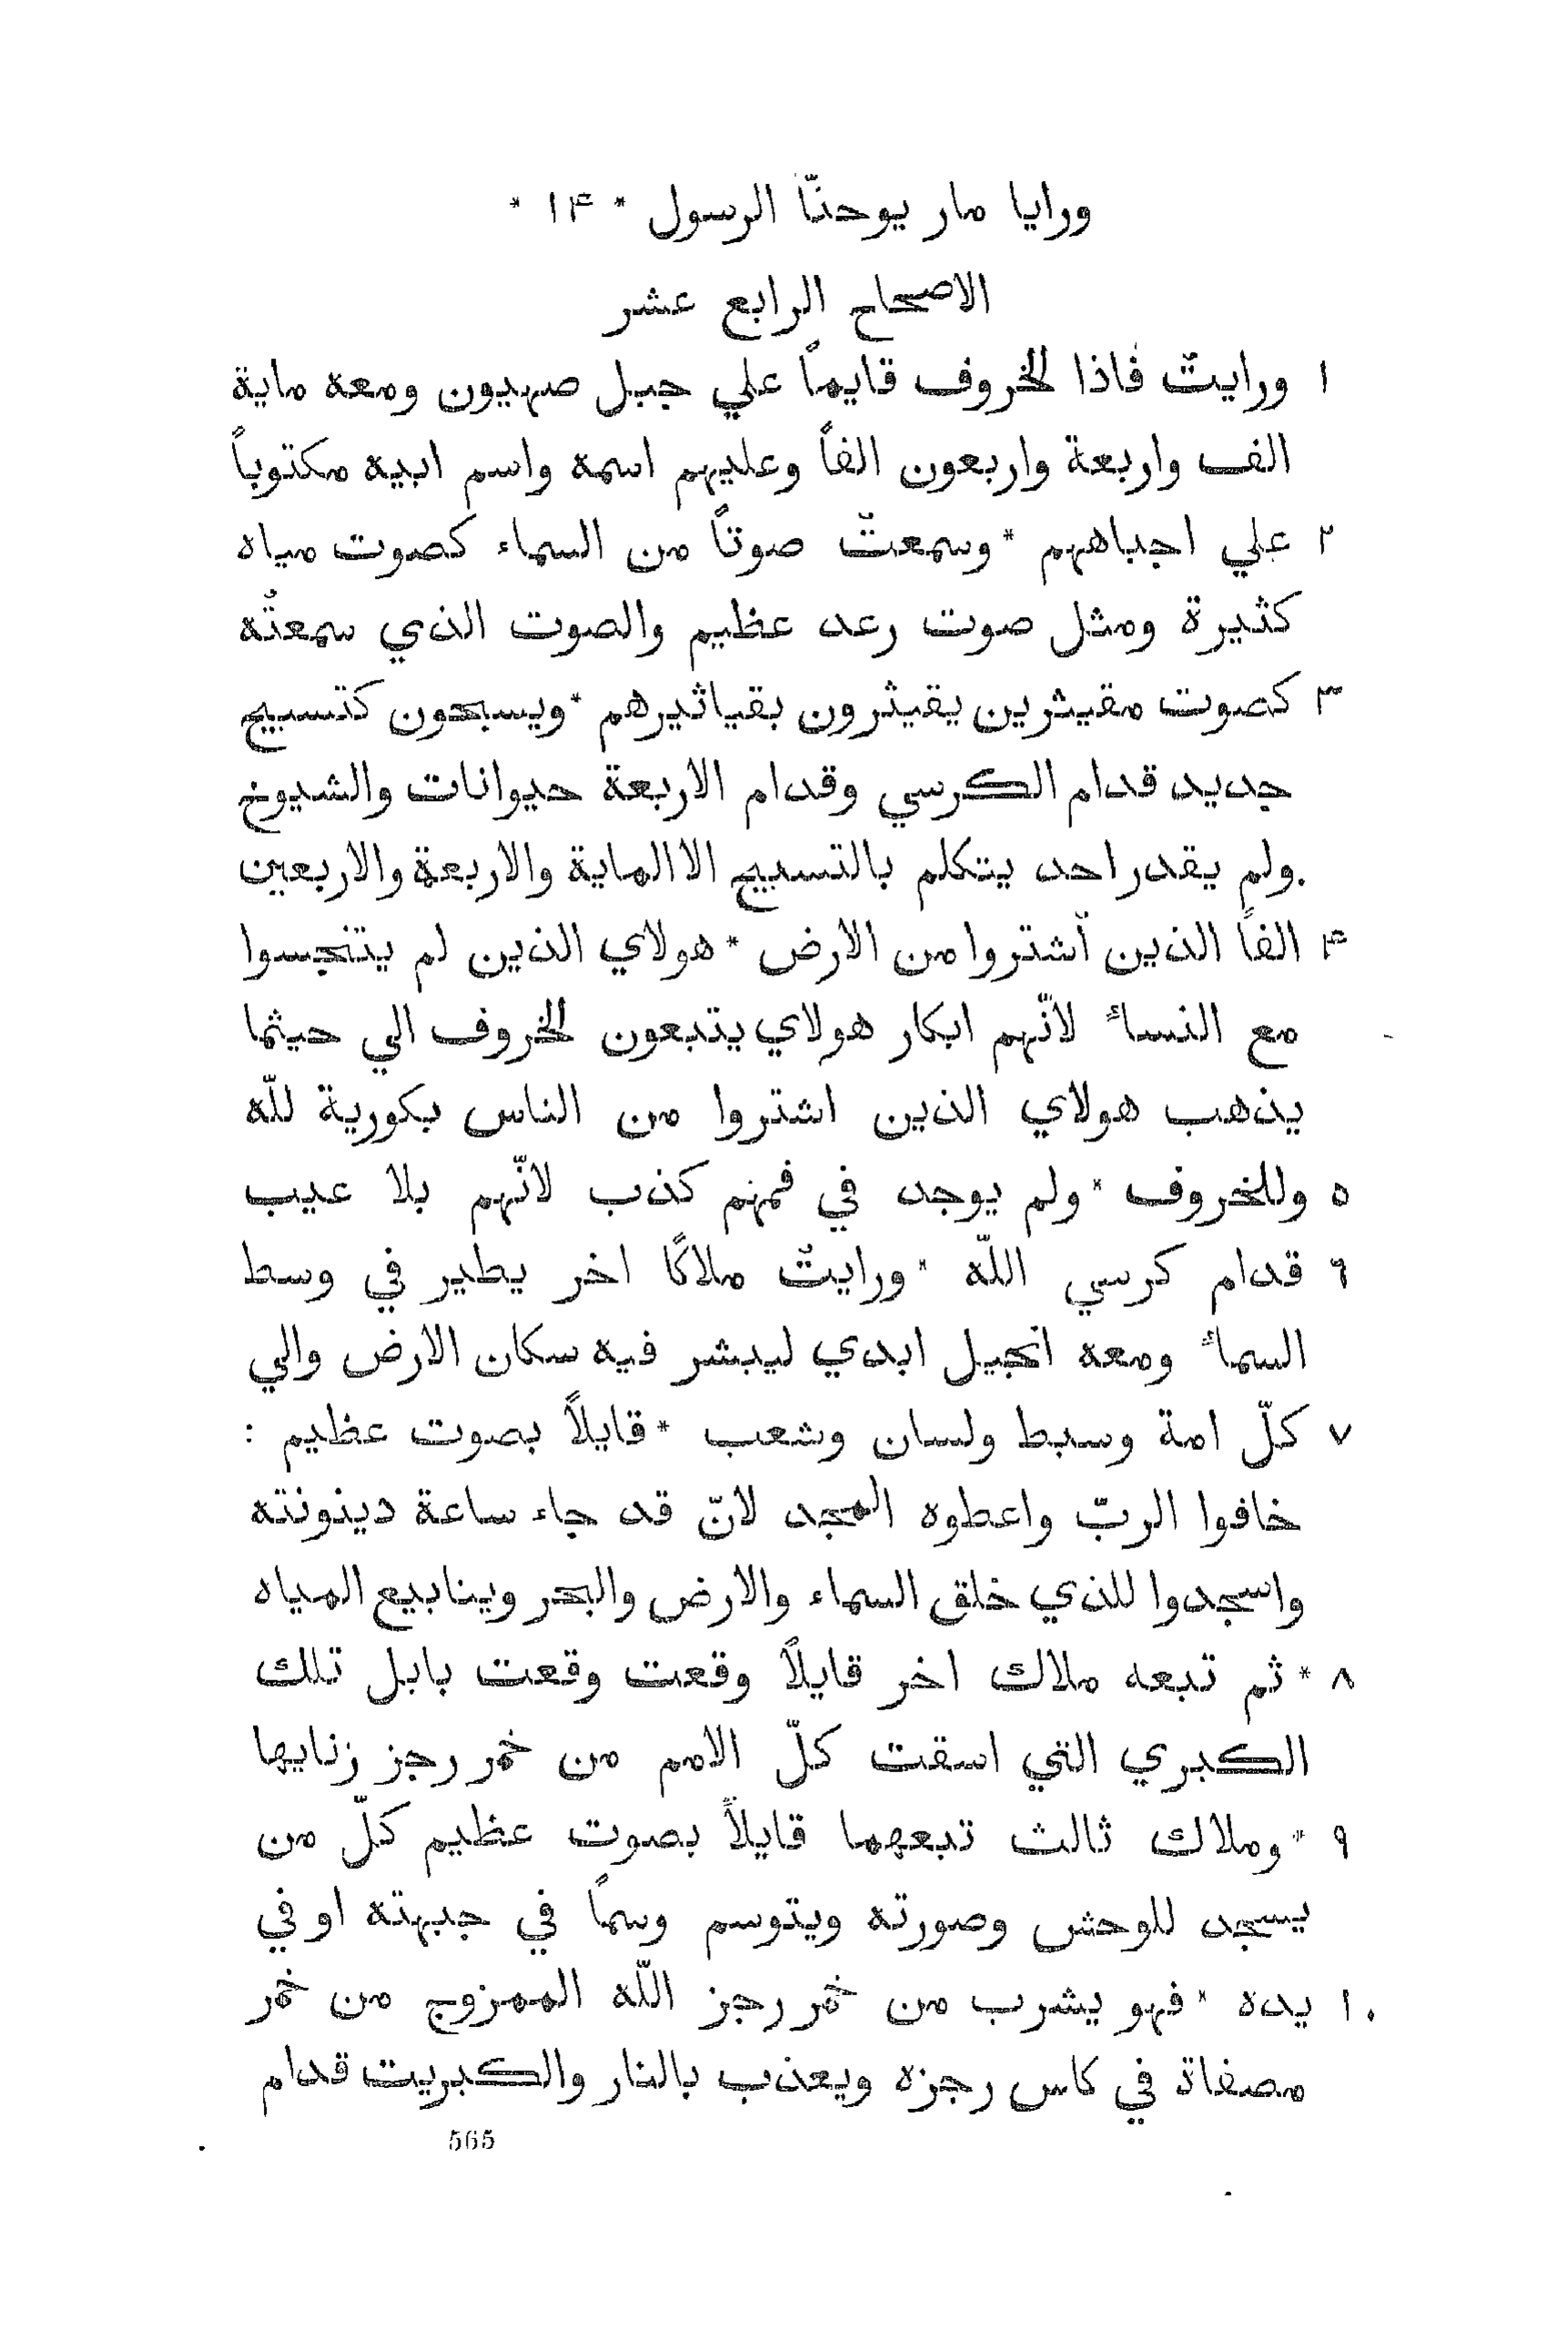 ورايا مار يوحنّا الرسول * ۱۴ *
الاصحاح الرابع عشر
۱ ورايتُ فاذا لخروف قايماً علي جبل صهيون ومعه ماية
الف واربعة واربعون الفاً وعليهم اسمه واسم ابيه مكتوباً
۲ علي اجباههم * وسمعتُ صوتاً من السماء كصوت مياه
كثيرة ومثل صوت رعد عظيم والصوت الذي سمعتُه
۳ كصوت مقيثرين يقيثرون بقياثيرهم * ويسبحون كتسبيح
جديد قدام الكرسي وقدام الاربعة حيوانات والشيوخ
ولم يقدر احد يتكلم بالتسبيح الا الماية والاربعة والاربعين
۴ الفاً الذين اشتروا من الارض * هولاي الذين لم يتنجسوا
مع النساءِ لانّهم ابكار هولاي يتبعون لخروف الي حيثما
يذهب هولاي الذين اشتروا من الناس بكورية للّه
٥ وللخروف * ولم يوجد في فمهم كذب لانّهم بلا عيب
٦ قدام كرسي اللّه * ورايتُ ملاكًا اخر يطير في وسط
السماءِ ومعه انجيل ابدي ليبشر فيه سكان الارض والي
۷ كلّ امة وسبط ولسان وشعب * قايلاً بصوت عظيم :
خافوا الربّ واعطوه المجد لانّ قد جاء ساعة دينونته
واسجدوا للذي خلق السماء والارض والبحر وينابيع المياه
۸ * ثم تبعه ملاك اخر قايلاً وقعت وقعت بابل تلك
الكبري التي اسقت كلّ الامم من خمر رجز زنايها
۹ * وملاك ثالث تبعهما قايلاً بصوت عظيم كلّ من
يسجد للوحش وصورته ويتوسم وسماً في جبهته او في
۱۰ يده * فهو يشرب من خمر رجز اللّه الممزوج من خمر
مصفاة في كاس رجزه ويعذب بالنار والكبريت قدام
565